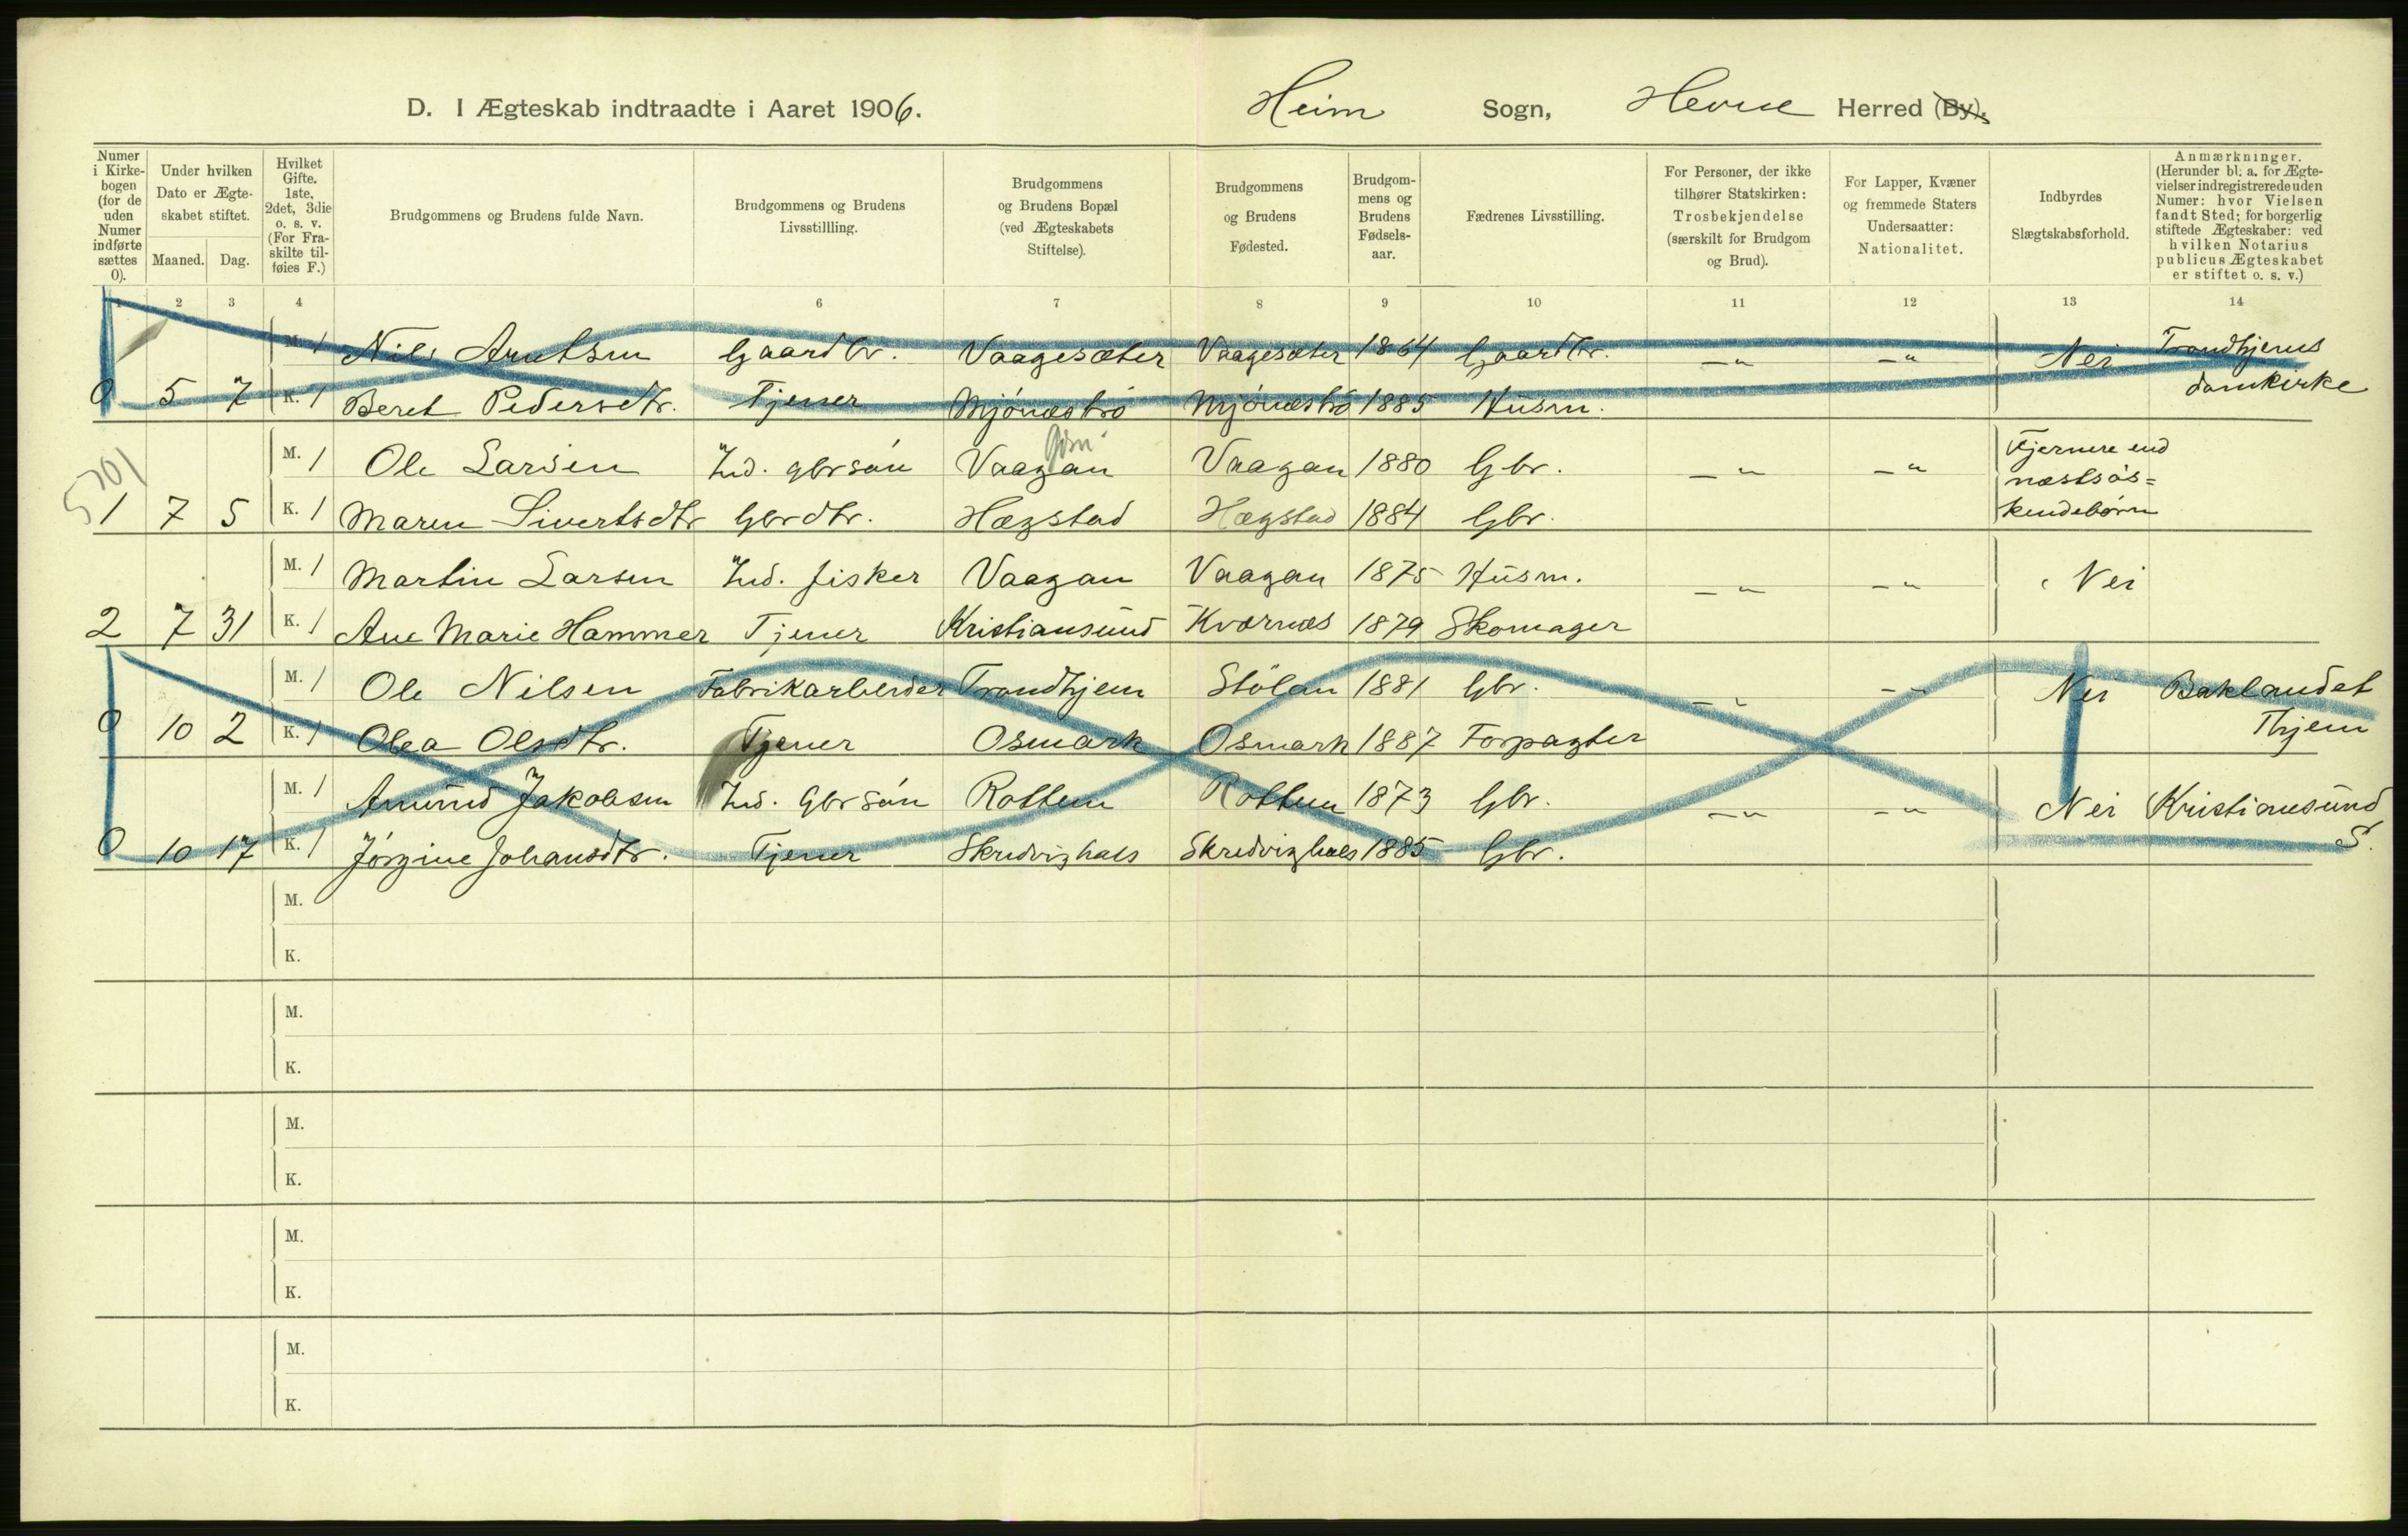 D. I Ægteskab indtraadte i Aaret 1906. Heim Sogn, Hevne Herred (By).
Numer i Kirkebogen (for de uden Numer indførte sættes 0).
Under hvilken Dato er Ægteskabet stiftet.
Maaned. Dag.
Hvilket Gifte. 1ste, 2det, 3die o. s. v. (For Fraskilte tilføies F.)
Brudgommens og Brudens fulde Navn.
Brudgommens og Brudens Livsstillling.
Brudgommens og Brudens Bopæl (ved Ægteskabets Stiftelse).
Brudgommens og Brudens Fødested.
Brudgommens og Brudens Fødselsaar.
Fædrenes Livsstilling.
For Personer, der ikke tilhører Statskirken: Trosbekjendelse (særskilt for Brudgom og Brud).
For Lapper, Kvæner og fremmede Staters Undersaatter: Nationalitet.
Indbyrdes Slægtskabsforhold.
Anmærkninger. (Herunder bl. a. for Ægtevielser indregistrerede uden Numer: hvor Vielsen fandt Sted; for borgerlig stiftede Ægteskaber: ved hvilken Notarius publicus Ægteskabet er stiftet o. s. v.)
1 2 3 4 6 7 8 9 10 11 12 13 14
M. 1 Nils Arntsen Gaardbr. Vaagesæter Vaagesæter 1864 Gaardbr. —"— —"— Nei Trondhjems
0 5 7 K. 1 Beret Pedersdtr. Tjener Mjönesbrö Mjönesbrö 1885 Husm. domkirke
5701
M. 1 Ole Larsen Ind. gbrsön Vaagan Vaagan 1880 Gbr. —"— —"— Fjernere end næstsös=
1 7 5 K. 1 Maren Sivertsdtr Gbrdtr. Hægstad Hægstad 1884 Gbr. kendebørn
M. 1 Martin Larsen Ind. fisker Vaagan Vaagan 1875 Husm. —"— —"— Nei
2 7 31 K. 1 Ane Marie Hammer Tjener Kristiansund Kværnes 1879 Skomager
M. 1 Ole Nilsen Fabrikarbeider Trondhjem Stölan 1881 Gbr. —"— —"— Nei Baklandet
0 10 2 K. 1 Olea Olsdtr. Tjener Osmark Osmark 1887 Forpagter Thjem
M. 1 Amund Jakobsen Ind. Gbrsön Rottem Rottem 1873 Gbr. —"— —"— Nei Kristiansund
0 10 17 K. 1 Jörgine Johansdtr. Tjener Skredvighals Skredvighals 1885 Gbr. S.
M.
K.
M.
K.
M.
K.
M.
K.
M.
K.